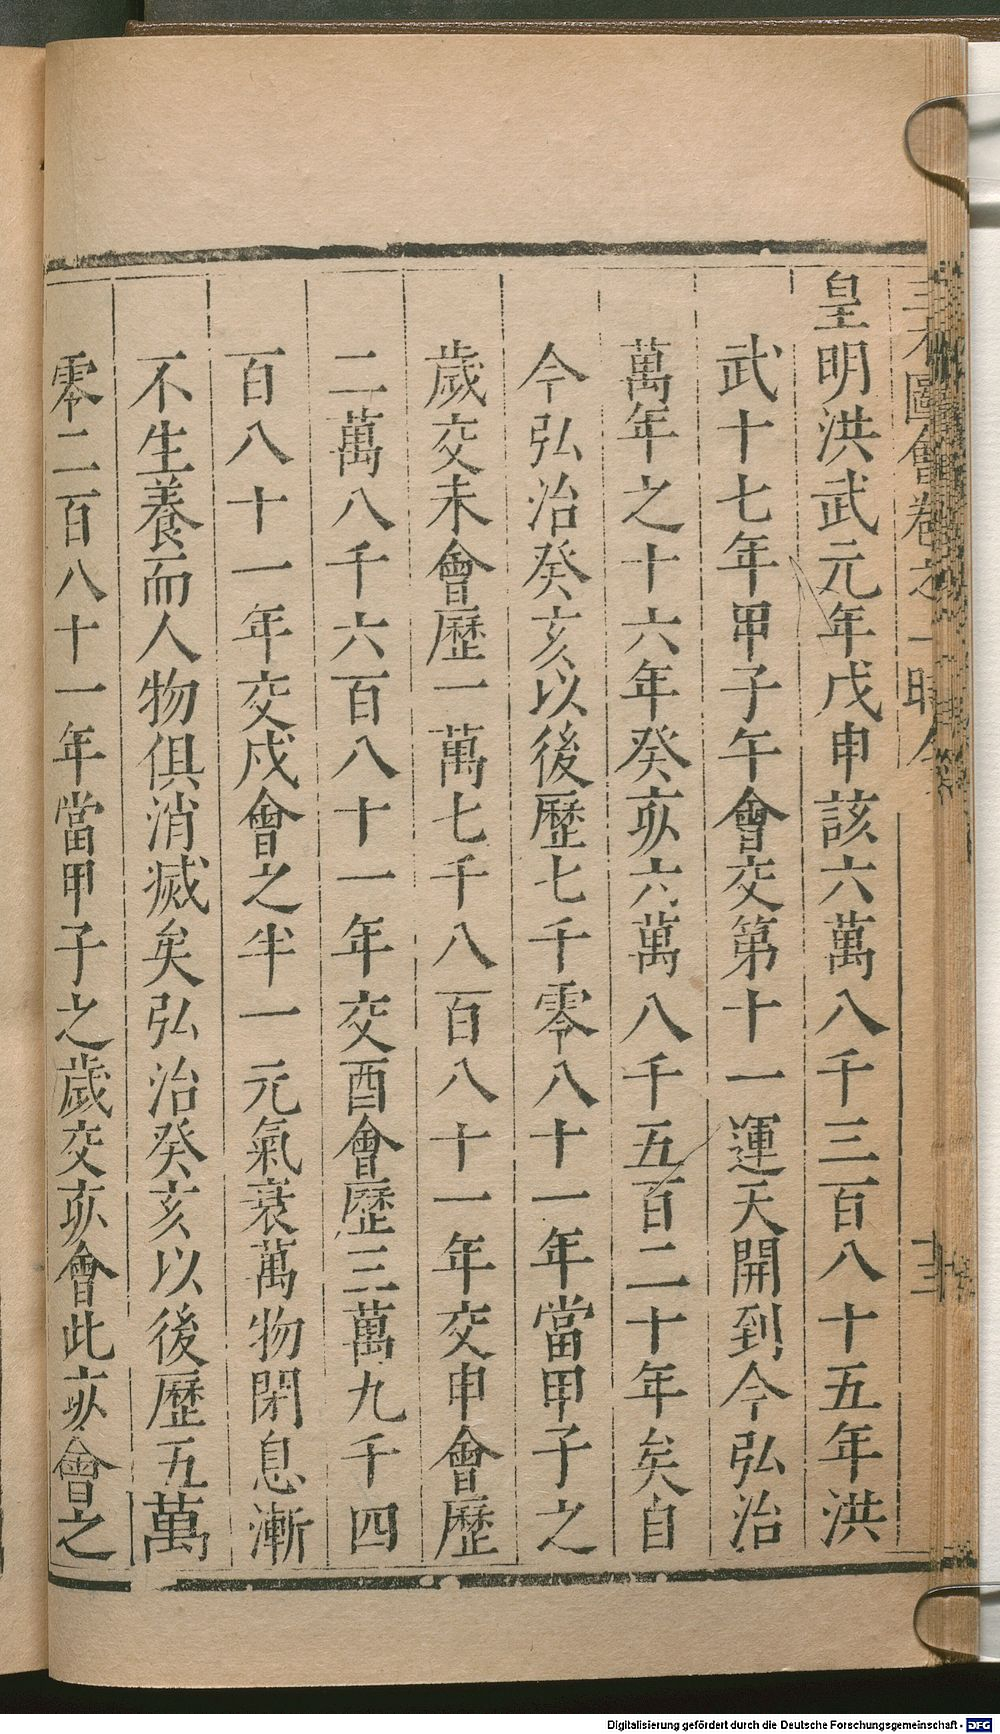 皇明洪武元年戊申該六萬八千三百八十五年洪
武十七年甲子午會交第十一運天開到今弘治
萬年之十六年癸亥六萬八千五百二十年矣自
今弘治癸亥以後歷七千零八十一年當甲子之
歲交未會歷一萬七千八百八十一年交申會歷
二萬八千六百八十一年交酉會歷三萬九千四
百八十一年交戍會之半一元氣衰萬物閉息漸
不生養而人物俱消滅矣弘治癸亥以後歷五萬
零二百八十一年當甲子之歲交亥會此亥會之
三才圖會卷之一時令
十三
Digitalisierung gefördert durch die Deutsche Forschungsgemeinschaft - DFG